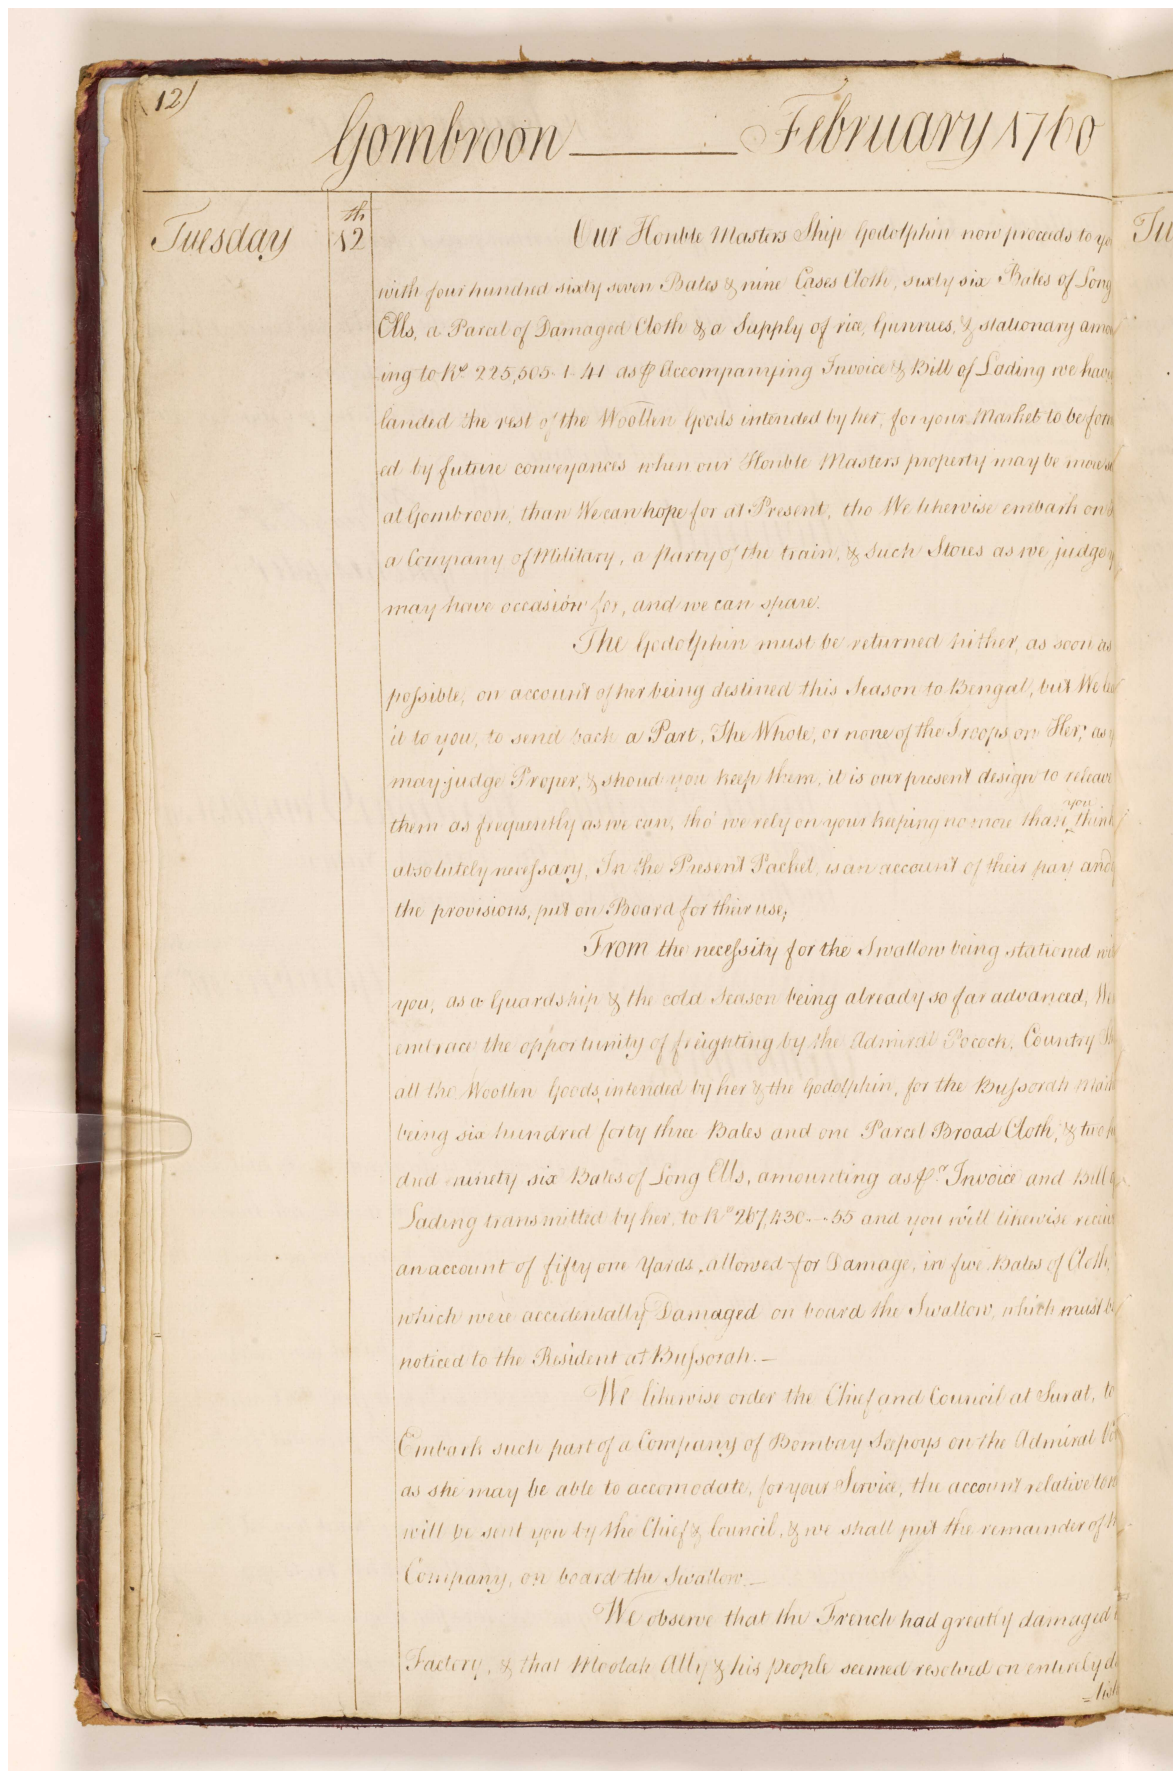 12)
Gombroon February 1760
Tuesday 12th Our Honble Masters Ship Godolphin now proceeds to yo
with four hundred sixty seven Bales & nine Cases Cloth, sixty six Bales of Long
Ells, a Parcel of Damaged Cloth & a Supply of rice, Gunnies, & stationary amo
ing to Rs 225,505-1-41 as p Accompanying Invoice & Bill of Lading we have
landed the rest of the Woollen Goods intended by her, for your Market to be for
ed by future conveyances when our Honble Masters property may be more
at Gombroon, than We can hope for at Present, tho We likewise embark on
a Company of Military, a Party of the train, & such Stores as we judge
may have occasion for, and we can spare.
The Godolphin must be returned hither, as soon as
possible, on account of her being destined this Season to Bengal, but We
it to you, to send back a Part, The Whole, or none of the Troops on Her, as
may judge Proper, & shoud you keep them, it is our present design to releave
them as frequently as we can, tho' we rely on your keeping no more than you think
absolutely necessary, In the Present Packet, is an account of their pay and
the provisions, put on Board for their use;
From the necessity for the Swallow being stationed
you, as a Guardship & the cold Season being already so far advanced, We
embrace the opportunity of freighting by the Admiral Pocock, Country
all the Woollen Goods, intended by her & the Godolphin, for the Bussorah
being six hundred forty three Bales and one Parcel Broad Cloth, & two
dred ninety six Bales of Long Ells, amounting as pr Invoice and Bill
Lading transmitted by her, to Rs 267,430--55 and you will likewise
an account of fifty one Yards, allowed for Damage, in five Bales of Cloth,
which were accidentally Damaged on board the Swallow, which must
noticed to the Resident at Bussorah.—
We likewise order the Chief and Council at Surat, to
Embark such part of a Company of Bombay Seepoys on the Admiral
as she may be able to accomodate, for your Service, the account relative
will be sent you by the Chief & Council, & we shall put the remainder of
Company, on board the Swallow.—
We observe that the French had greatly damaged
Factory, & that Moolah Ally & his people seemed resolved on entirely